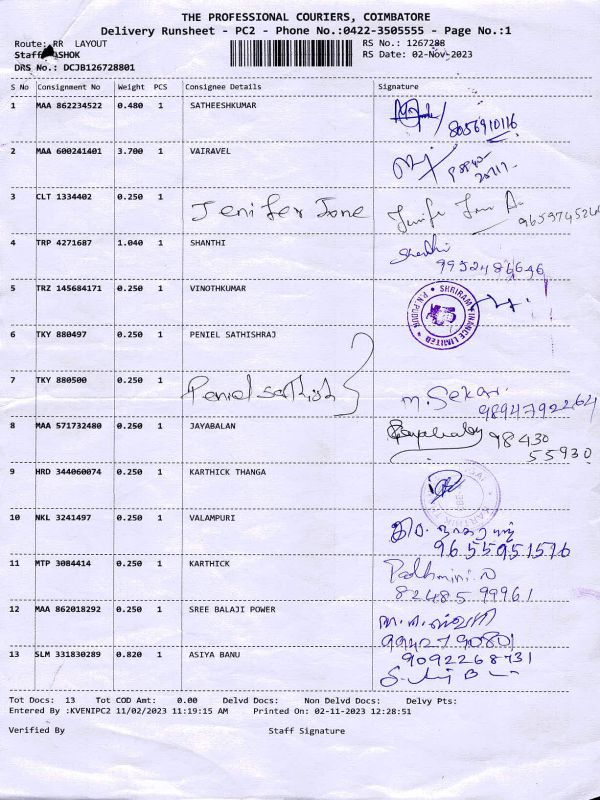 THE PROFESSIONAL COURIERS, COIMBATORE
Delivery Runsheet - PC2 - Phone No.:0422-3505555 - Page No.:1
Route: RR LAYOUT RS No.: 1267288
Staff: ASHOK RS Date: 02-Nov-2023
DRS No.: DCJB126728801
S No Consignment No Weight PCS Consignee Details Signature
1 MAA 862234522 0.480 1 SATHEESHKUMAR
8056910116
2 MAA 600241401 3.700 1 VAIRAVEL
3 CLT 1334402 0.250 1 Jenifer Jane
4 TRP 4271687 1.040 1 SHANTHI Shanthi
9952486646
5 TRZ 145684171 0.250 1 VINOTHKUMAR SHRIRAM FINANCE LIMITED P.N.PUDUR
6 TKY 880497 0.250 1 PENIEL SATHISHRAJ
7 TKY 880500 0.250 1 Peniel sathish M. Sekar
9894792264
8 MAA 571732480 0.250 1 JAYABALAN 98430
55930
9 HRD 344060074 0.250 1 KARTHICK THANGA
10 NKL 3241497 0.250 1 VALAMPURI
9655951576
11 MTP 3084414 0.250 1 KARTHICK Padhmini.N
82485 99961
12 MAA 862018292 0.250 1 SREE BALAJI POWER
9942790801
13 SLM 331830289 0.820 1 ASIYA BANU 9092268731
Tot Docs: 13 Tot COD Amt: 0.00 Delvd Docs: Non Delvd Docs: Delvy Pts:
Entered By :KVENIPC2 11/02/2023 11:19:15 AM Printed On: 02-11-2023 12:28:51
Verified By Staff Signature